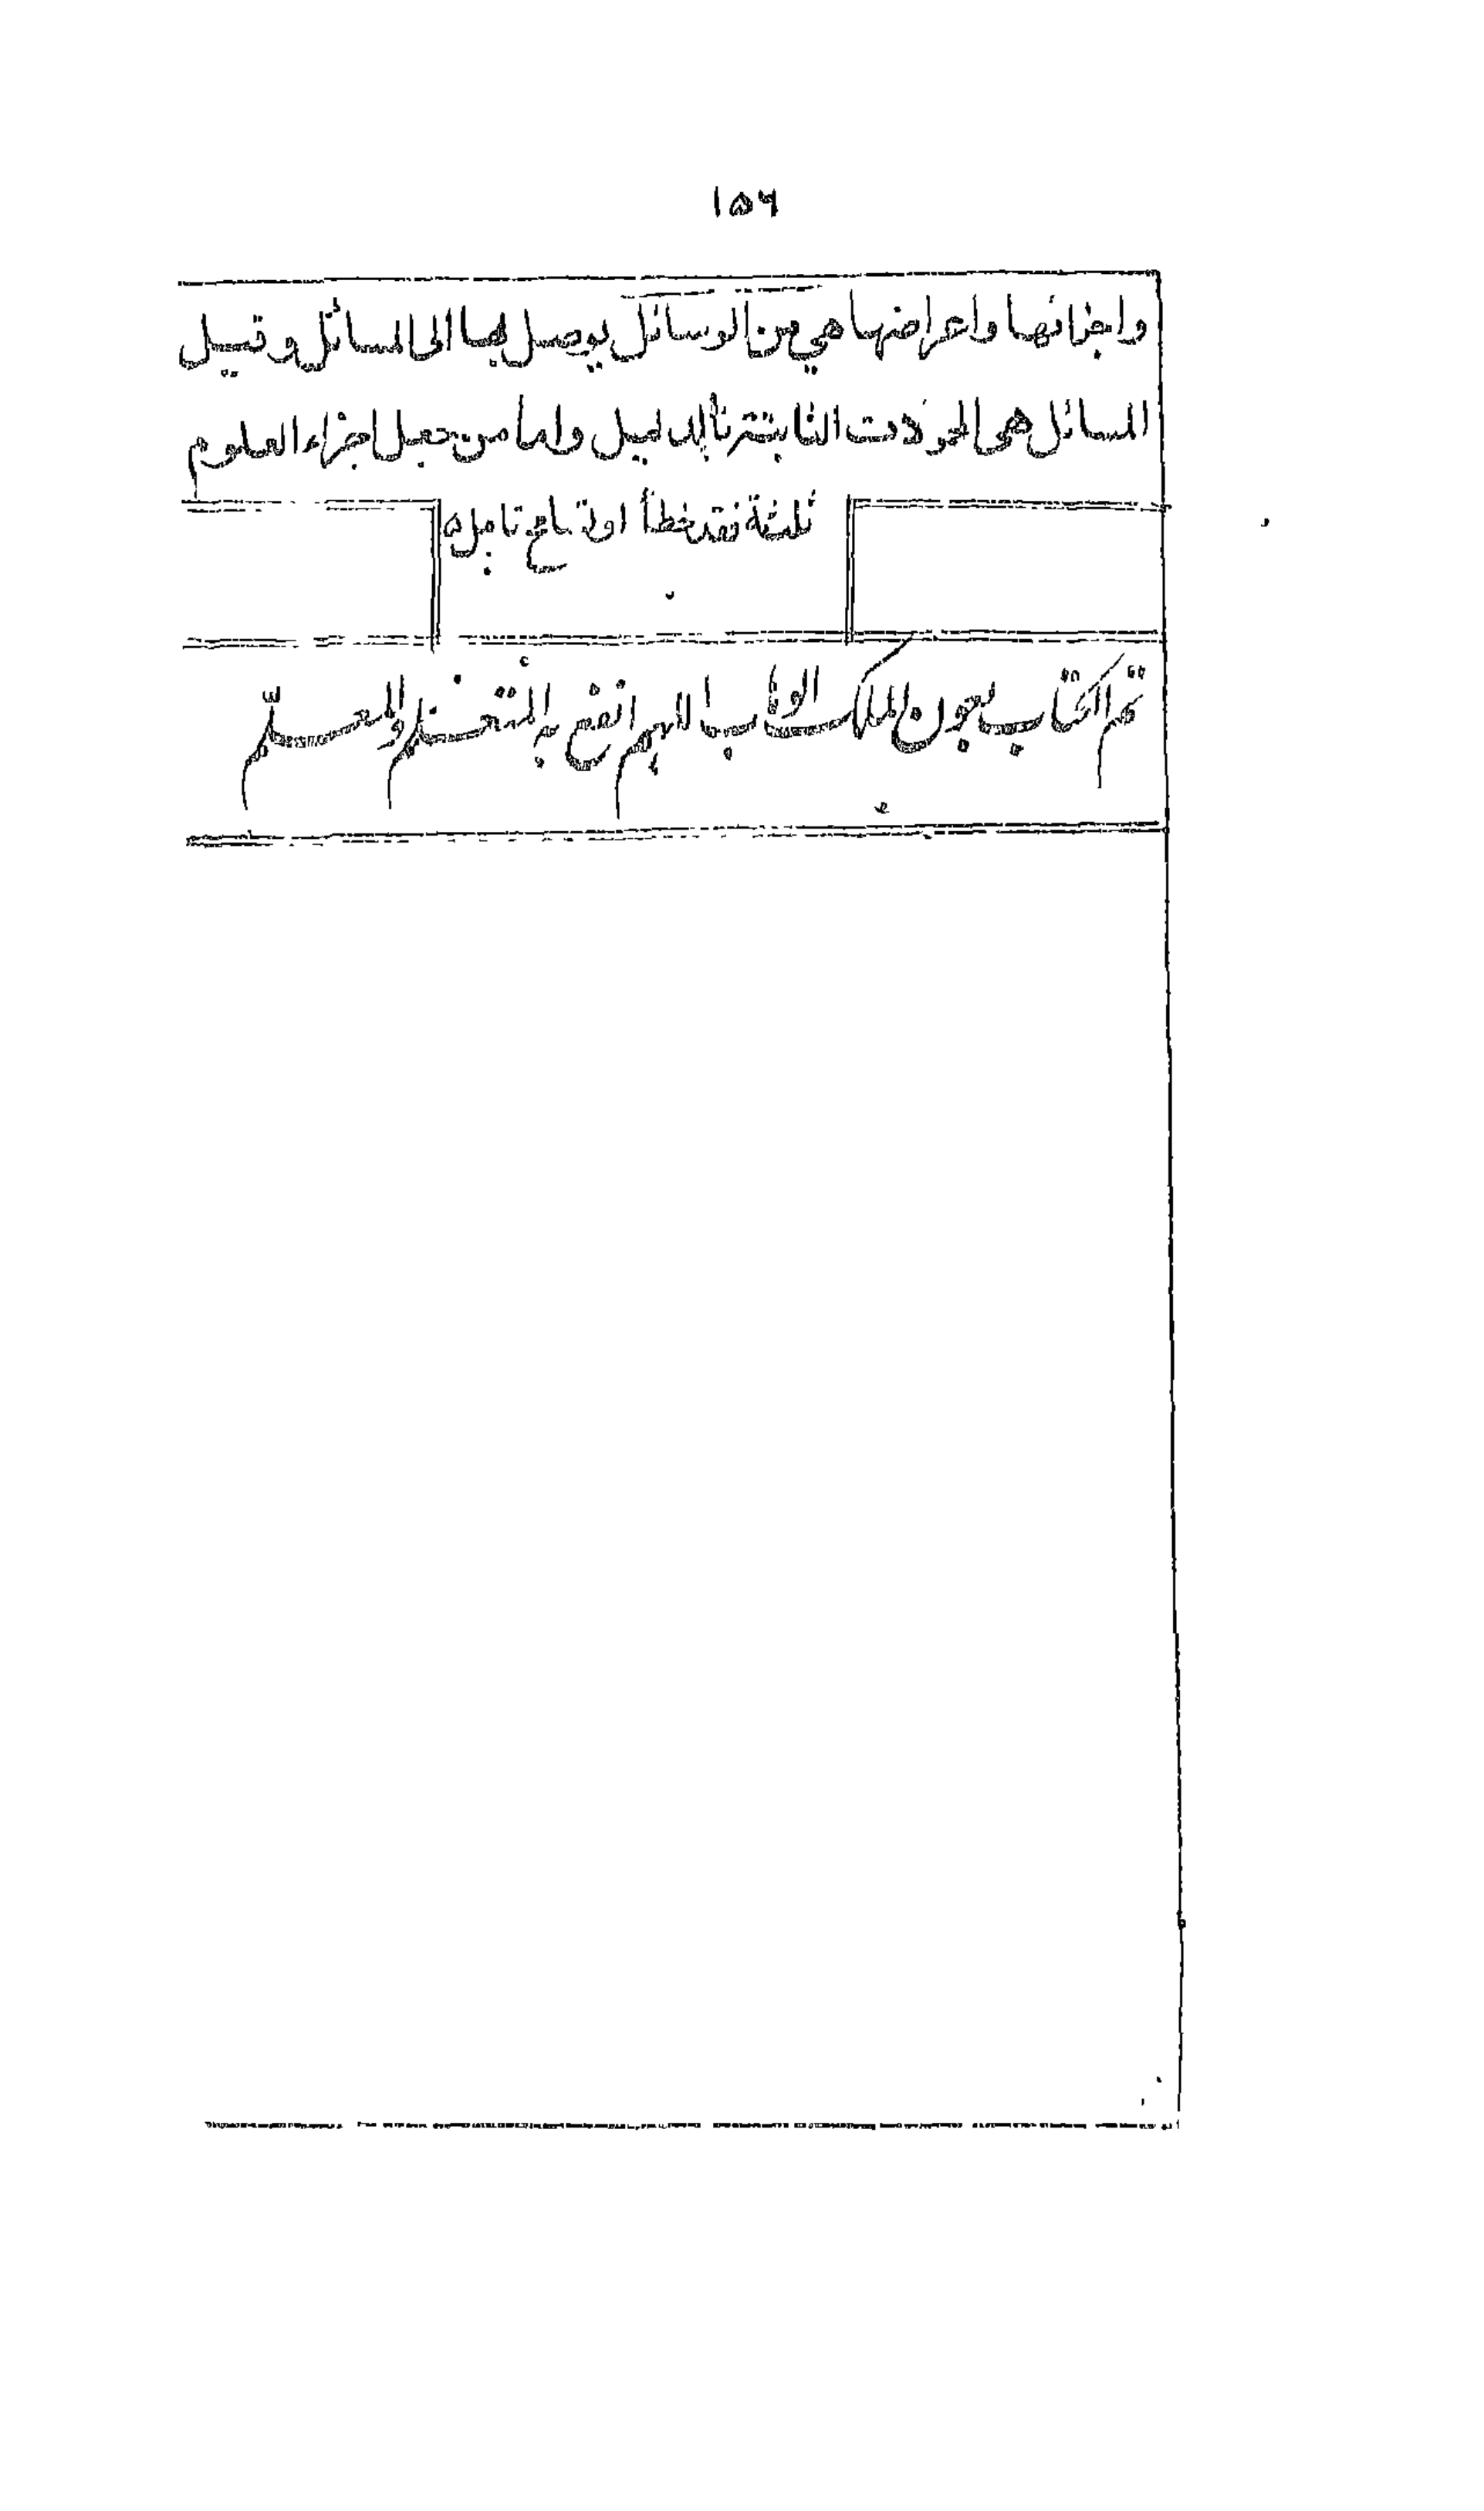 ۱۵۶
واجزائها واعراضها هي من الوسائل يوصل بها الى المسائل وقيل
المسائل هي المحمولات الثابتة بالدليل واما من جعل اجزاء العلوم
ثلثة فقد خطأ او تسامح تامل ه
تم الكتاب بعون الملك الوهاب اللهم انفع به المتعلم والمعلم